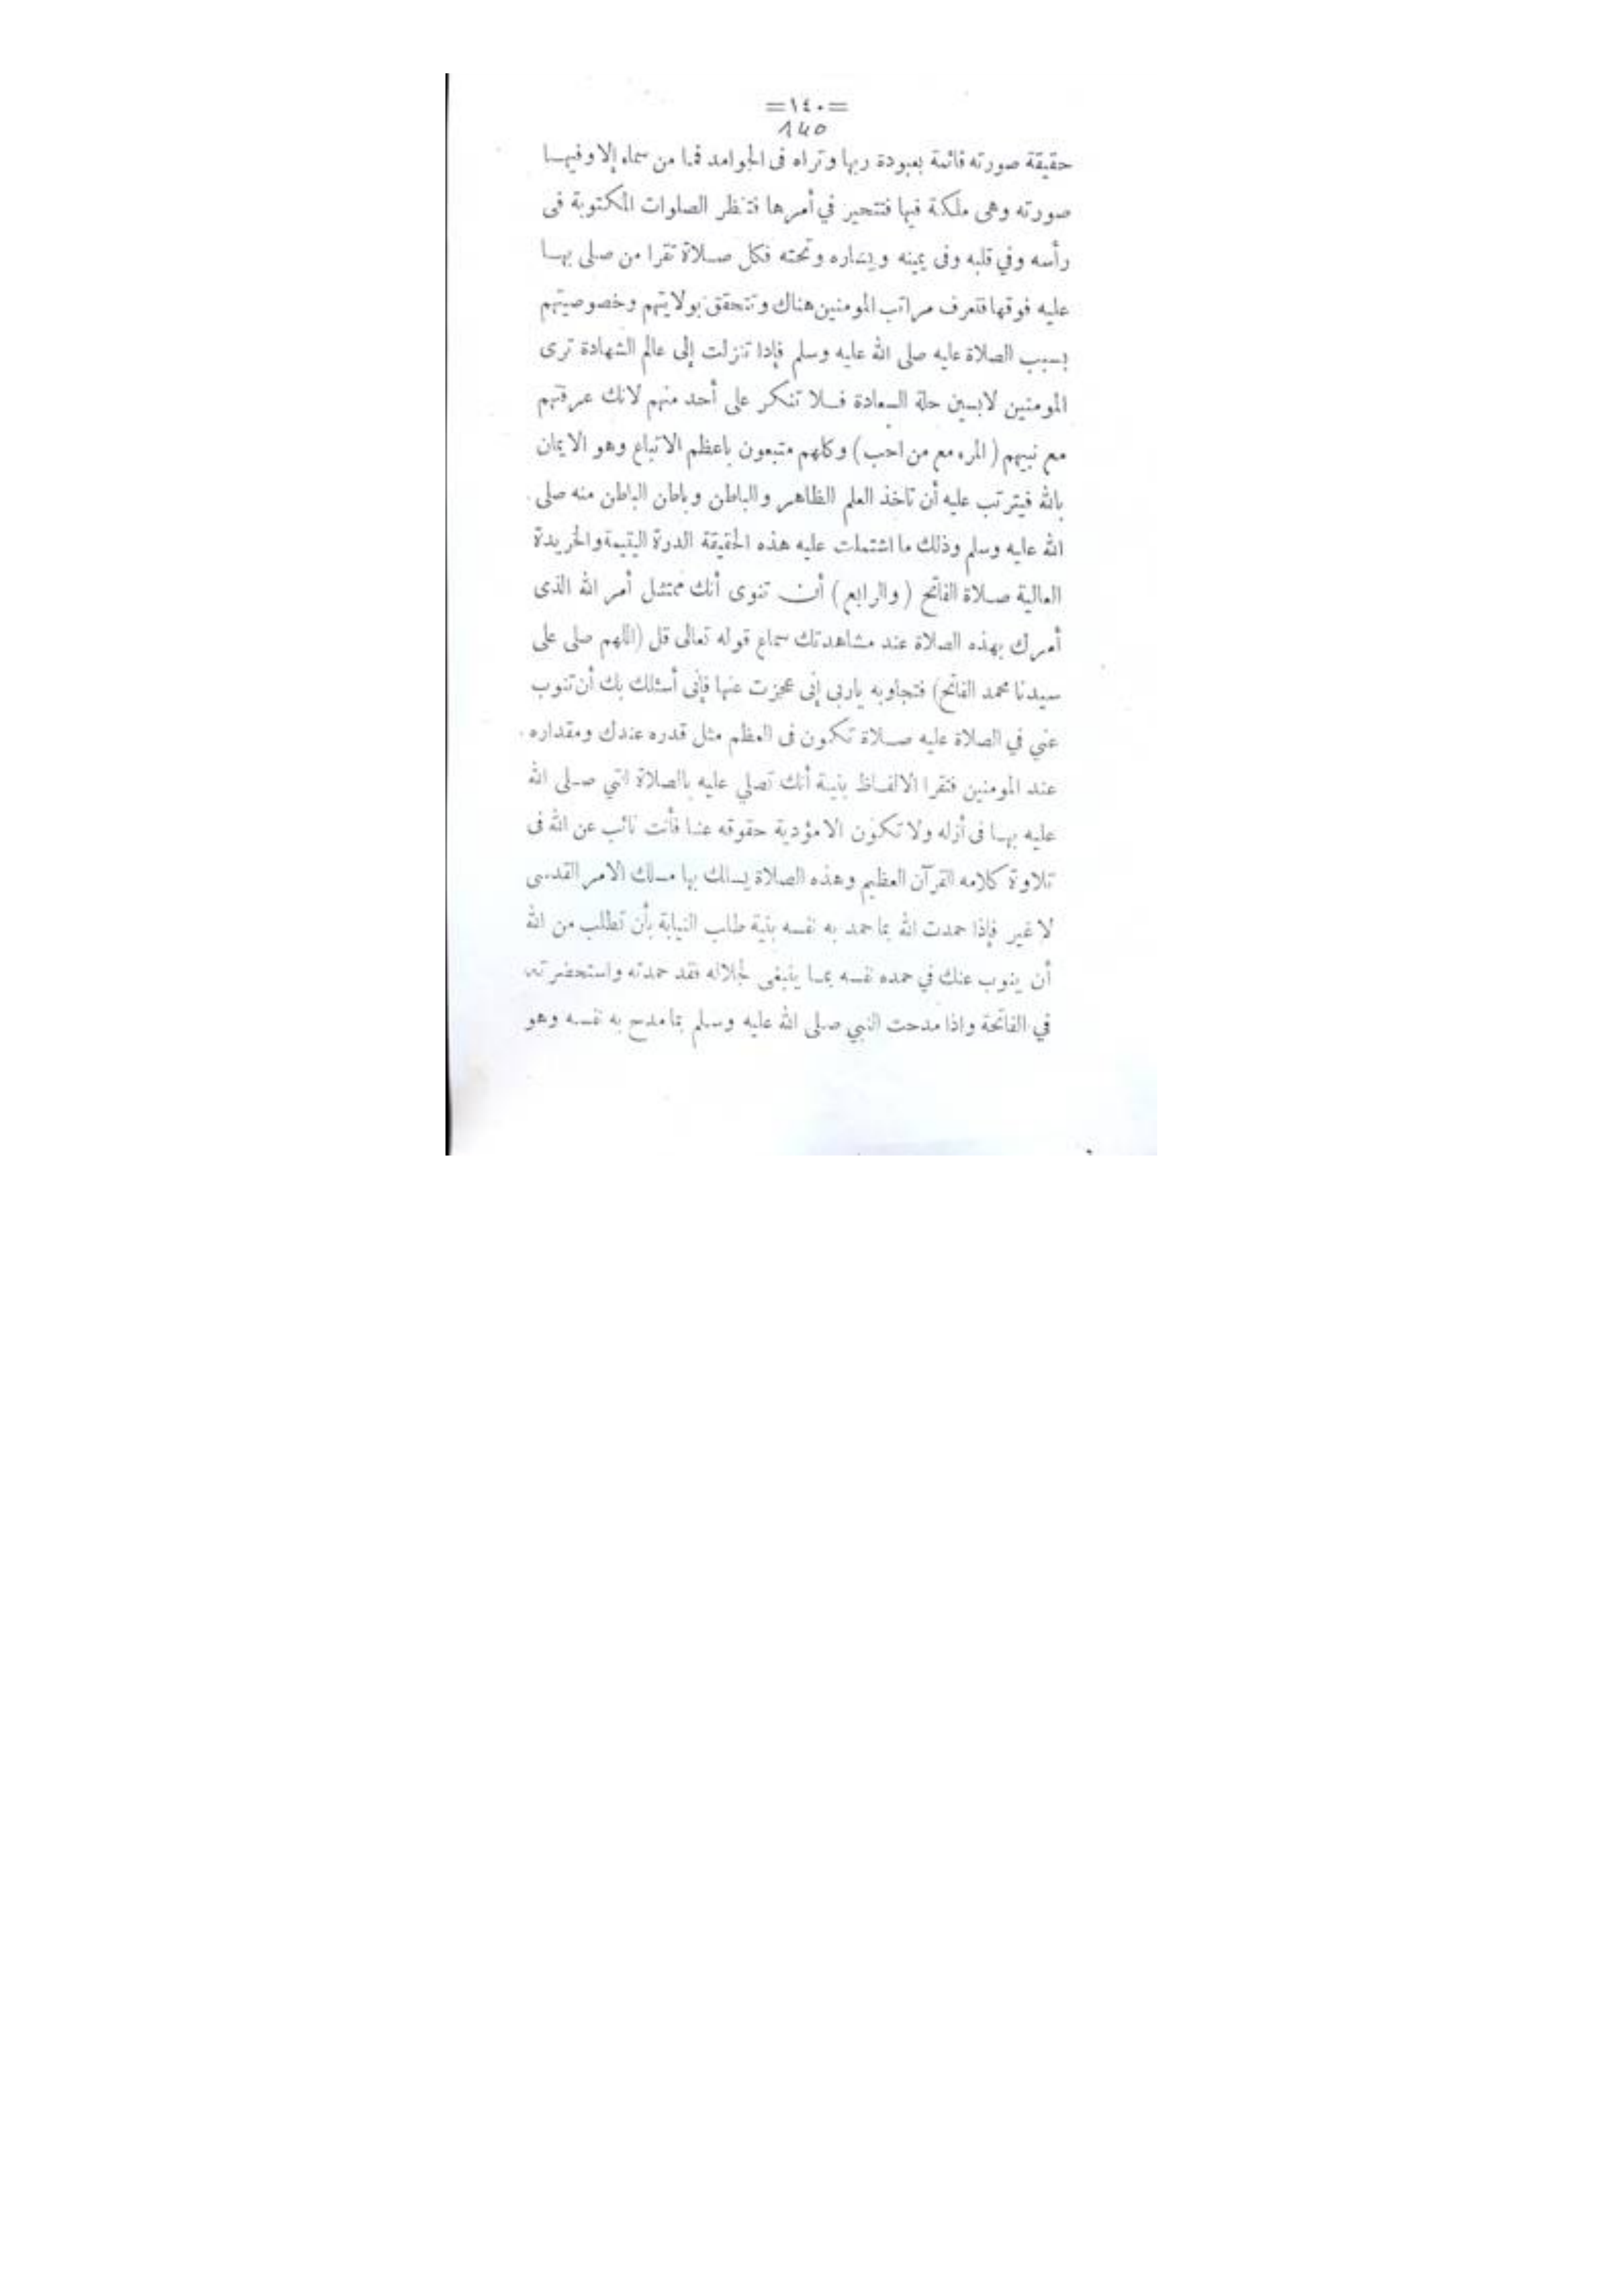 =١٤٠=
140
حقيقة صورته قائمة بعبودة ربها وتراه فى الجوامد فما من سماء إلا وفيهـا
صورته وهى ملكة فيها فتتحير في أمرها فتنظر الصلوات المكتوبة فى
رأسه وفي قلبه وفى يمينه ويساره وتحته فكل صـلاة تقرا من صلى بهـا
عليه فوقها فتعرف مراتب المومنين هناك وتتحقق بولايتهم وخصوصيتهم
بسبب الصلاة عليه صلى الله عليه وسلم فإذا تنزلت إلى عالم الشهادة ترى
المومنين لابسين حلة السعادة فـلا تنكر على أحد منهم لانك عرفتهم
مع نبيهم (المرء مع من احب) وكلهم متبعون باعظم الاتباع وهو الايمان
بالله فيترتب عليه أن تاخذ العلم الظاهر والباطن وباطن الباطن منه صلى
الله عليه وسلم وذلك ما اشتملت عليه هذه الحقيقة الدرة اليتيمة والخريدة
العالية صـلاة الفاتح (والرابع) أن تنوى أنك ممتثل أمر الله الذى
أمرك بهذه الصلاة عند مشاهدتك سماع قوله تعالى قل (اللهم صلى على
سيدنا محمد الفاتح) فتجاوبه ياربى إنى عجزت عنها فإنى أسئلك بك أن تنوب
عني في الصلاة عليه صـلاة تكون فى العظم مثل قدره عندك ومقداره
عند المومنين فتقرا الالفـاظ بنية أنك تصلي عليه بالصلاة التي صـلى الله
عليه بهـا فى أزله ولا تكون الا مؤدية حقوقه عنـا فأنت نائب عن الله فى
تلاوة كلامه القرآن العظيم وهذه الصلاة يسلك بها مسلك الامر القدسى
لا غير فإذا حمدت الله بما حمد به نفسه بنية طلب النيابة بأن تطلب من الله
أن ينوب عنك في حمده نفسه بمـا ينبغى لجلاله فقد حمدته واستحضرته
في الفاتحة واذا مدحت النبي صلى الله عليه وسلم بما مدح به نفسه وهو